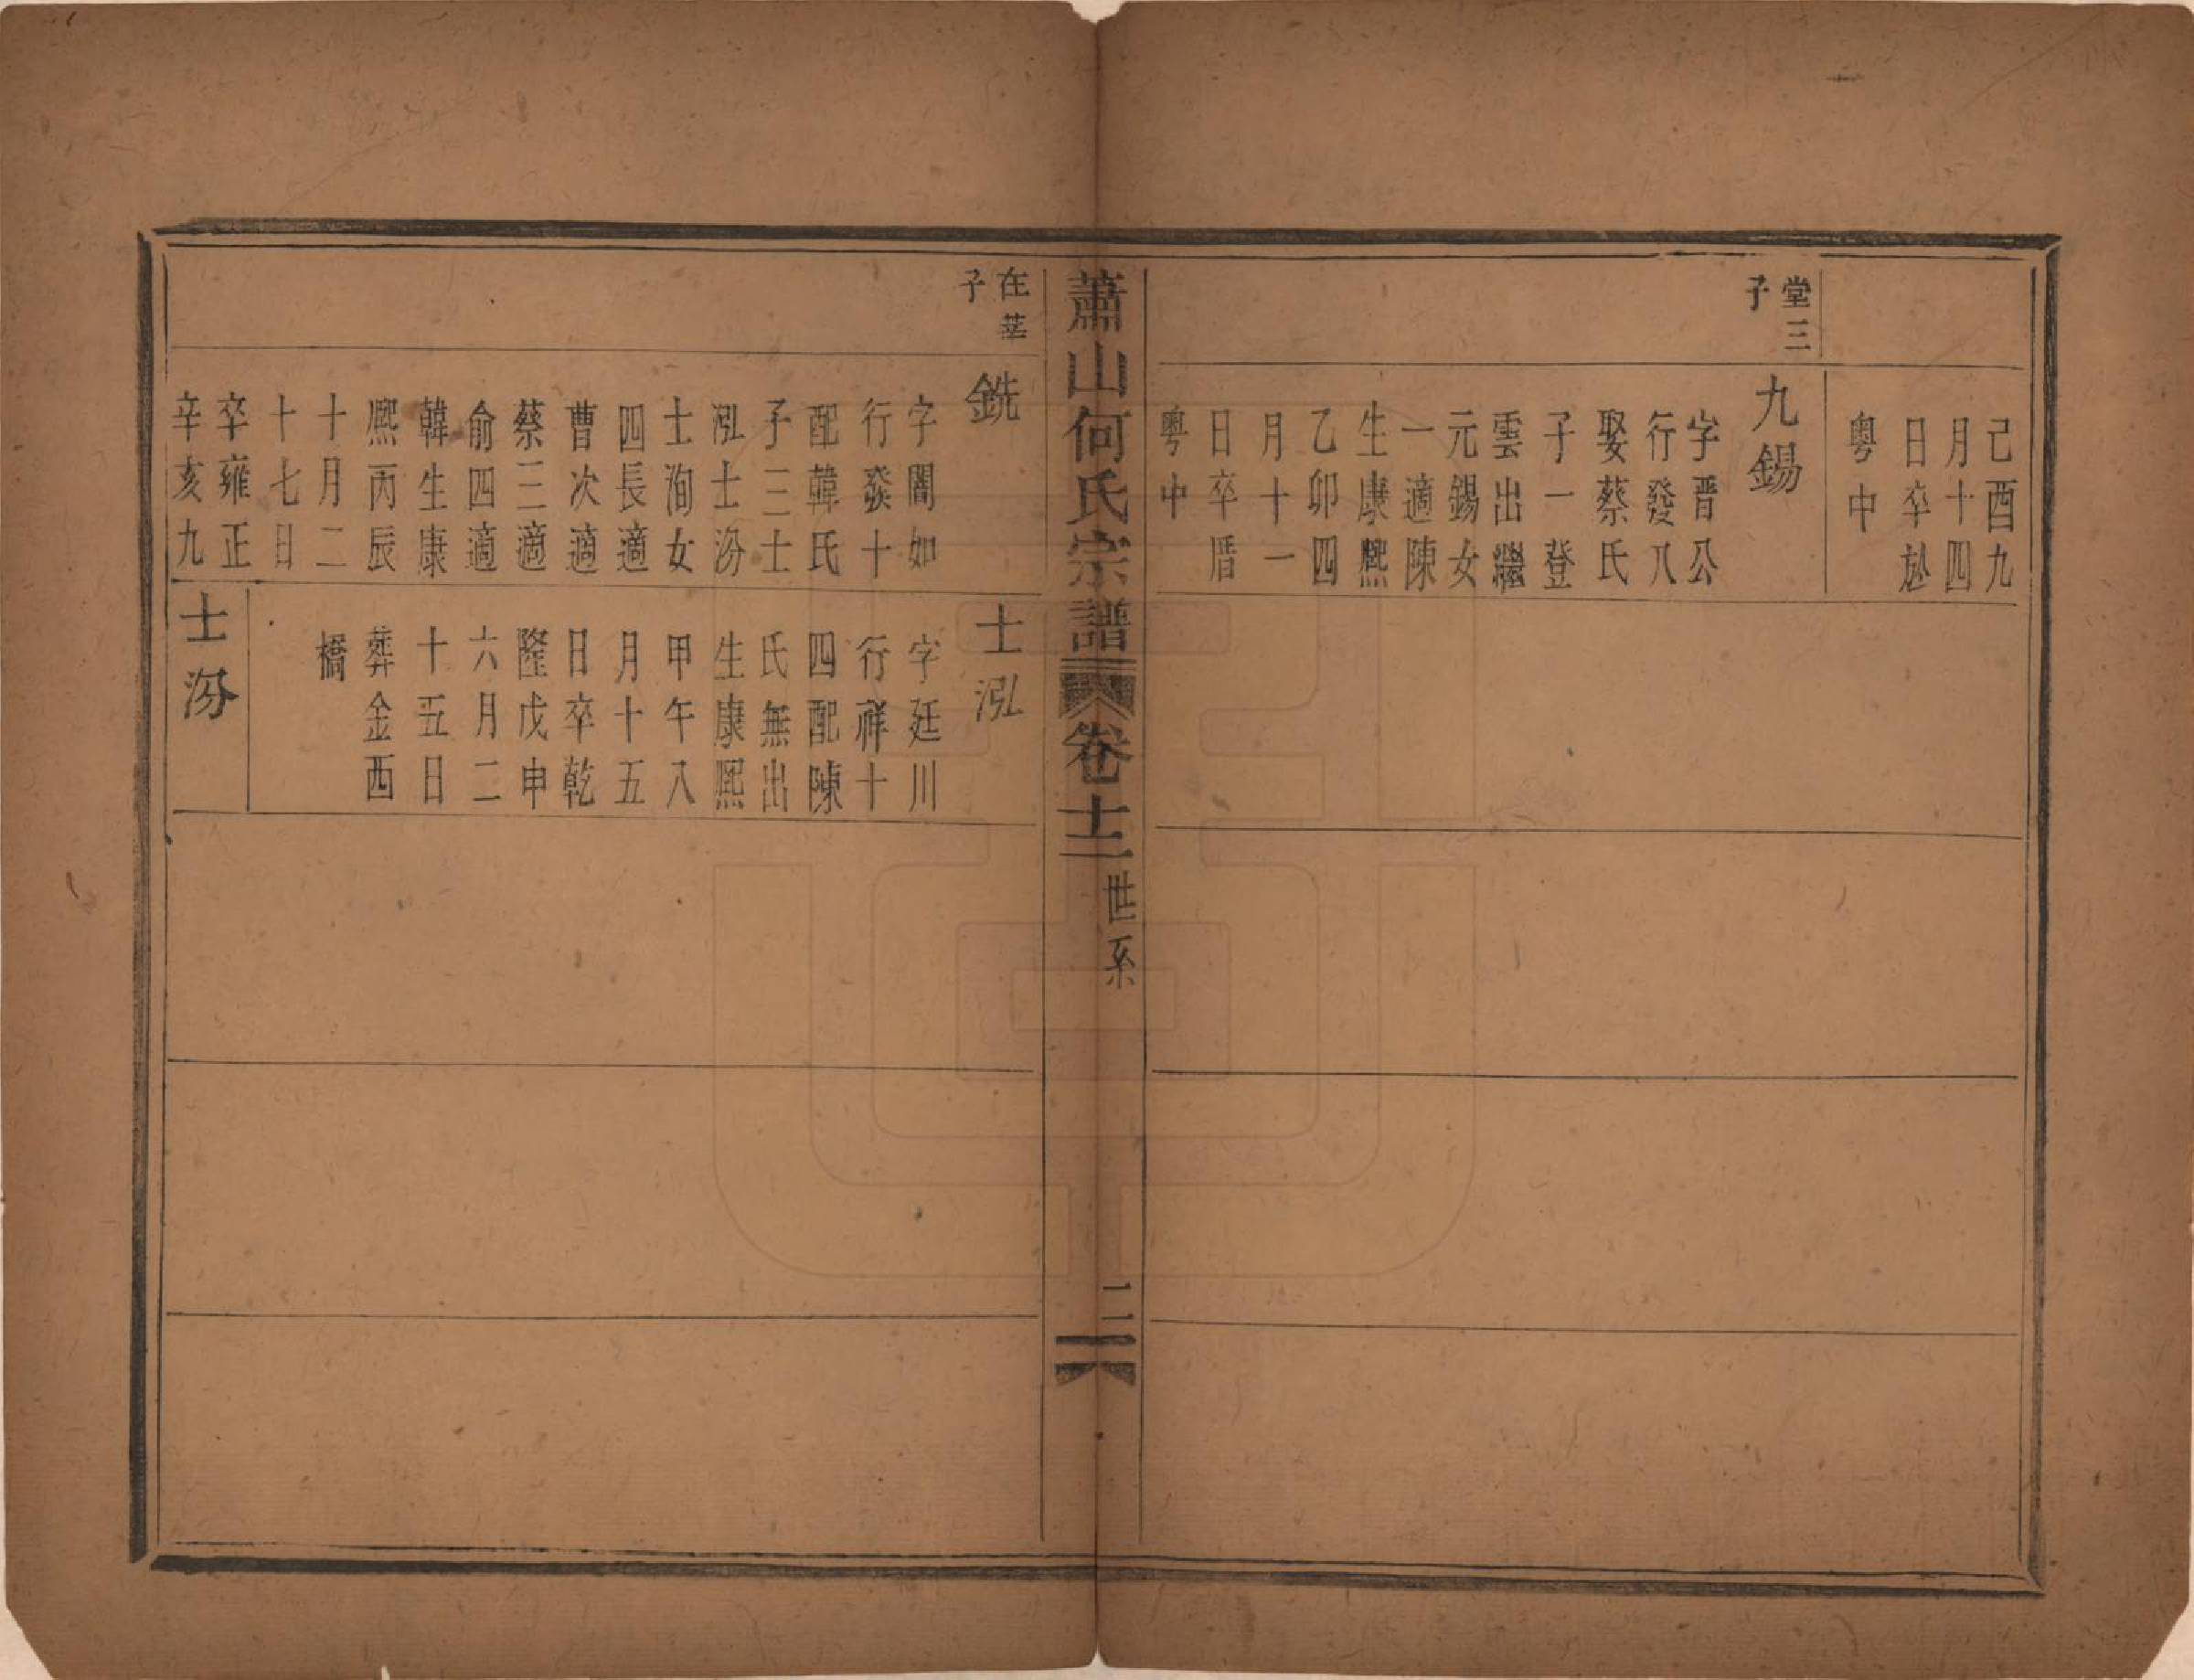 己酉九
月十四
日卒尨
粵中
堂三
子
九錫
字晋公
行發八
娶蔡氏
子一登
雲出繼
元錫女
一適陳
生康熙
乙卯四
月十一
日卒厝
粵中
蕭山何氏宗譜
卷十二
世系
二
在莖
子
銑
字闇如
行發十
配韓氏
子三士
泓士汾
士洵女
四長適
曹次適
蔡三適
俞四適
韓生康
熙丙辰
十月二
十七日
卒雍正
辛亥九
士泓
字廷川
行祥十
四配陳
氏無出
生康熙
甲午八
月十五
日卒乾
隆戊申
六月二
十五日
葬金西
橋
士汾